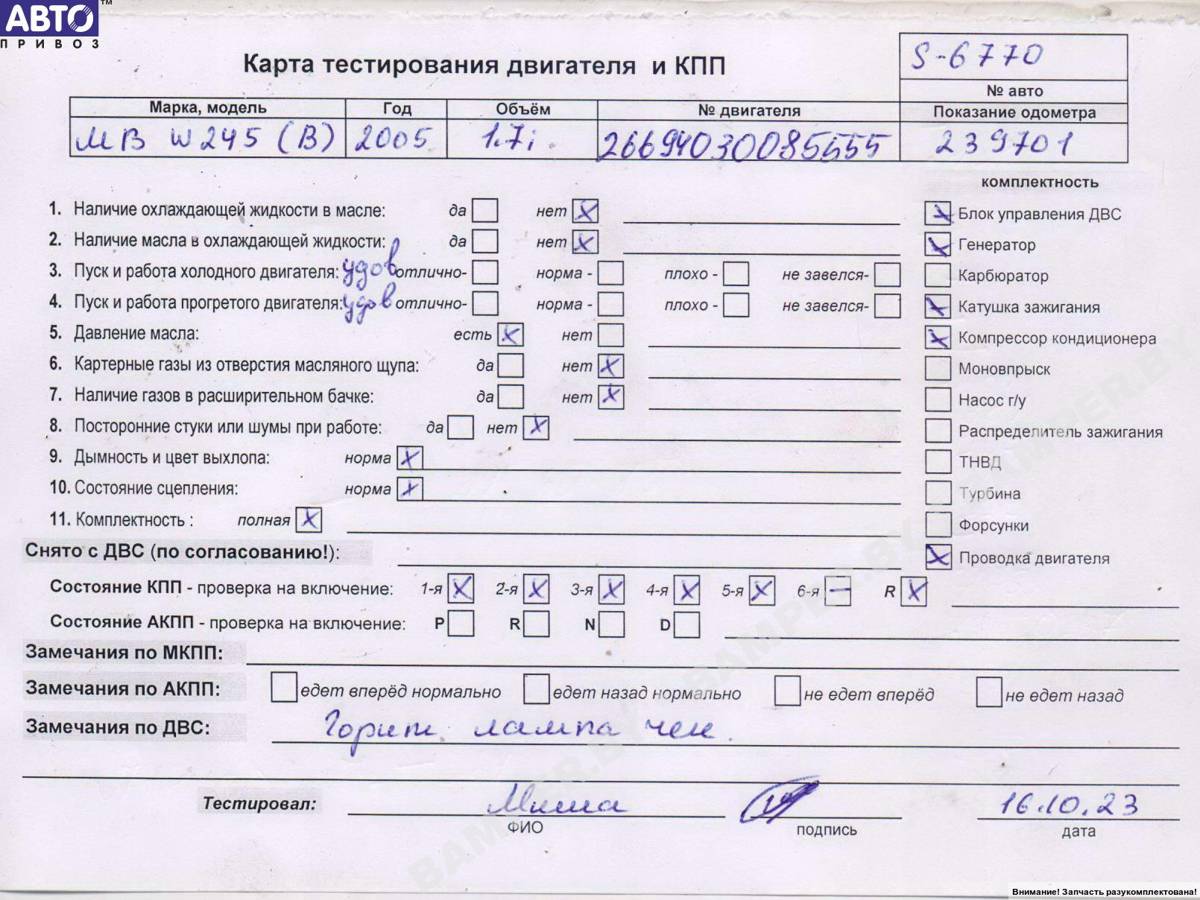 АВТО ™
ПРИВОЗ
Карта тестирования двигателя и КПП
S-6770
№ авто
Марка, модель Год Объём № двигателя Показание одометра
МВ W245 (В) 2005 1.7i 26694030085555 239701
комплектность
1. Наличие охлаждающей жидкости в масле: да нет X Блок управления ДВС
2. Наличие масла в охлаждающей жидкости: да нет X Генератор
3. Пуск и работа холодного двигателя: удов отлично- норма - плохо - не завелся- Карбюратор
4. Пуск и работа прогретого двигателя: удов отлично- норма - плохо - не завелся- Катушка зажигания
5. Давление масла: есть X нет Компрессор кондиционера
6. Картерные газы из отверстия масляного щупа: да нет X Моновпрыск
7. Наличие газов в расширительном бачке: да нет X Насос г/у
8. Посторонние стуки или шумы при работе: да нет X Распределитель зажигания
9. Дымность и цвет выхлопа: норма X ТНВД
10. Состояние сцепления: норма X Турбина
11. Комплектность : полная X Форсунки
Снято с ДВС (по согласованию!): Проводка двигателя
Состояние КПП - проверка на включение: 1-я X 2-я X 3-я X 4-я X 5-я X 6-я — R X
Состояние АКПП - проверка на включение: P R N D
Замечания по МКПП:
Замечания по АКПП: едет вперёд нормально едет назад нормально не едет вперёд не едет назад
Замечания по ДВС: Горит лампа чек.
Тестировал: Миша 16.10.23
ФИО подпись дата
BAMPER.BY
Внимание! Запчасть разукомплектована!